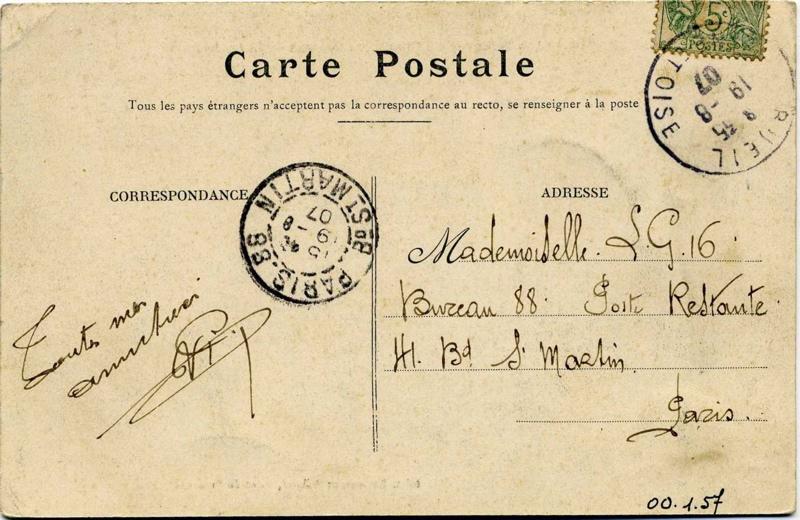 5c
POSTES
Carte Postale
Tous les pays étrangers n'acceptent pas la correspondance au recto, se renseigner à la poste
RUEIL
8 35
19 -8
07
TOISE
CORRESPONDANCE
PARIS.88 Bd St MARTIN
15
19 -8
07
ADRESSE
Mademoiselle L.G.16
Bureau 88. Poste Restante
41. Bd St Martin.
Paris.
Toutes mes
amitiés
00.1.57